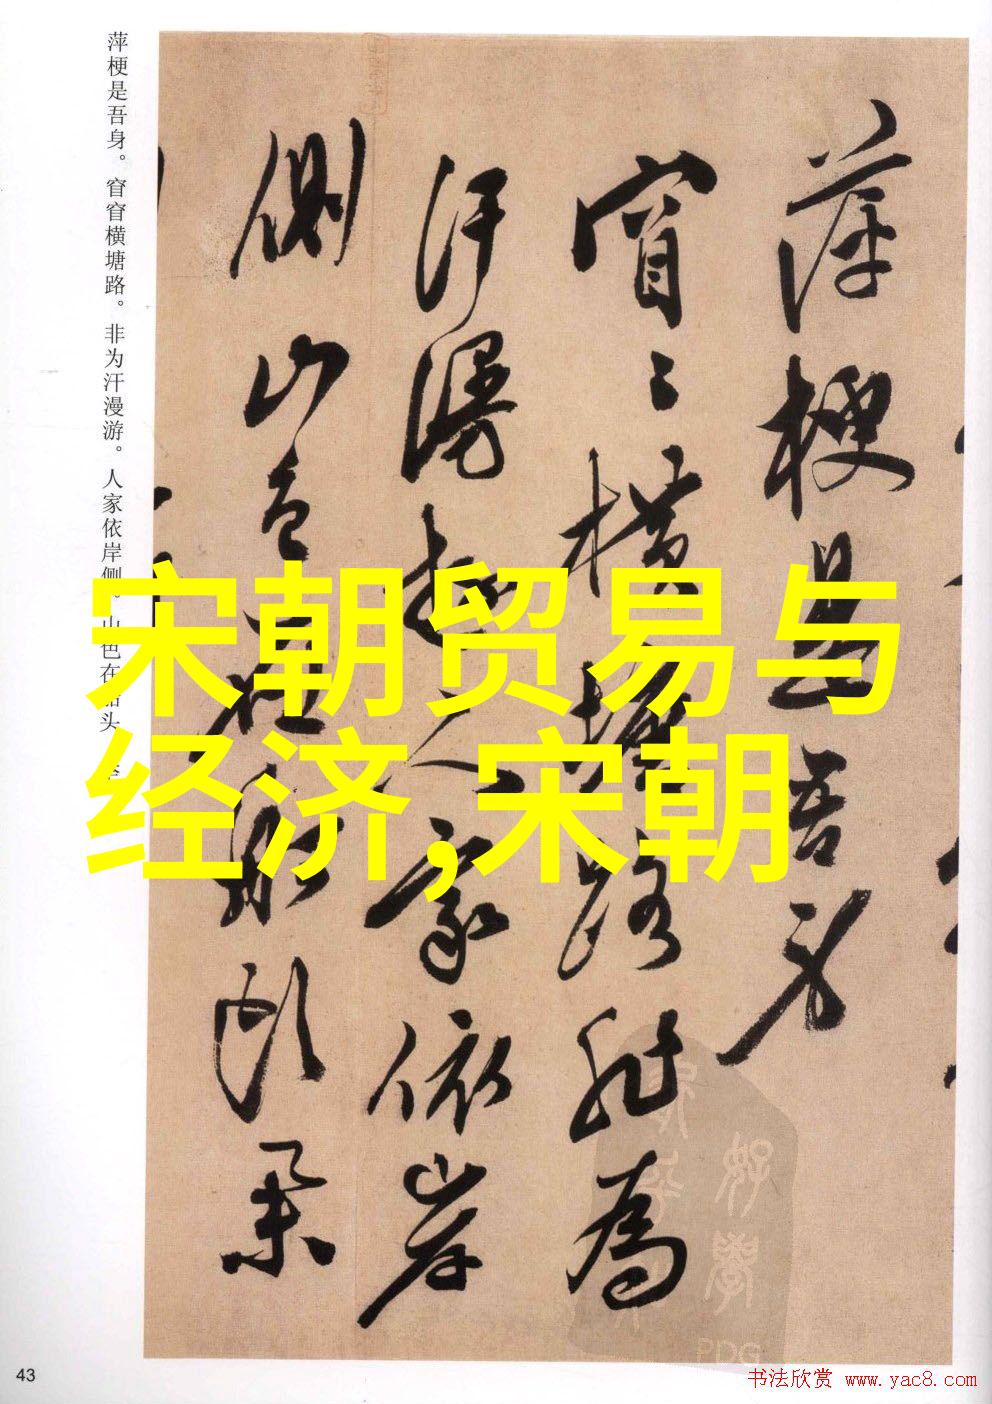 萍梗是吾身。窅窅横塘路。非为汗漫游。人家依岸侧。山色在船头
萍梗是吾身
窅〻橫塘路非為
汗漫遊人家依岸
側山色在船頭柔
宋朝贸易与
经济,宋朝
PDG
43
书法欣赏 www.yac8.com